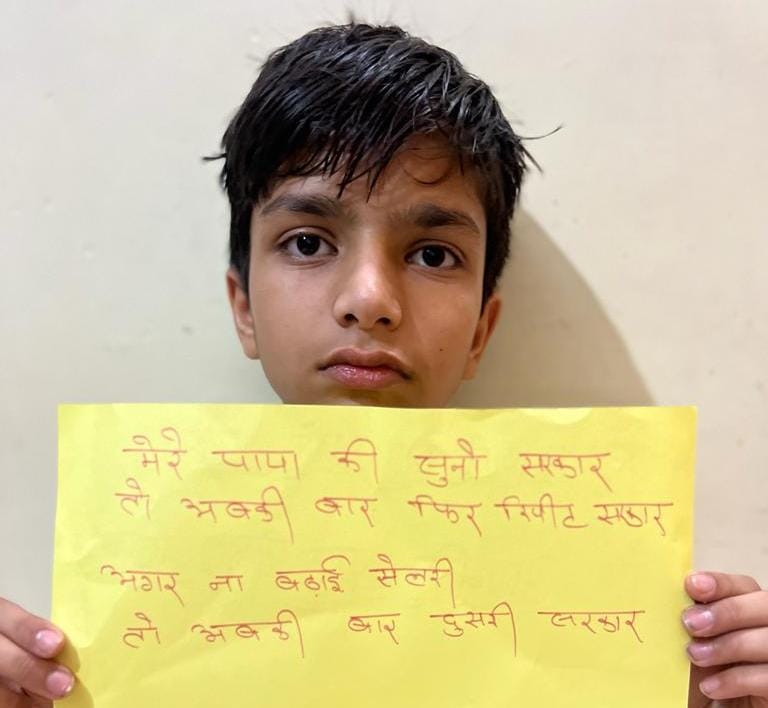 मेरे पापा की सुनो सरकार
तो अबकी बार फिर रिपीट सरकार
अगर ना बढ़ाई सैलरी
तो अबकी बार दुसरी सरकार